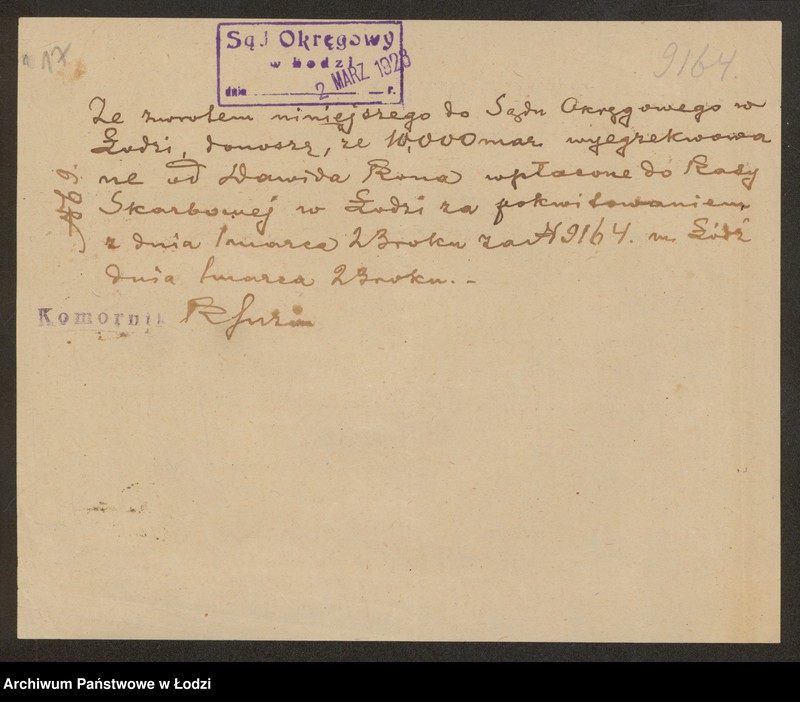 17
Sąd Okręgowy
w Łodzi
dnia 2 MARZ 1923 r.
9164.
Ze zwrotem niniejszego do Sądu Okręgowego w
Łodzi, donoszę, że 10,000 mar. wyegzekwowa
ne od Dawida Kona wpłacone do Kasy
Skarbowej w Łodzi za pokwitowaniem
z dnia 1 marca 23 roku za N 9164. m. Łódź
dnia 1 marca 23 roku. -
Komornik
N 69.
Archiwum Państwowe w Łodzi